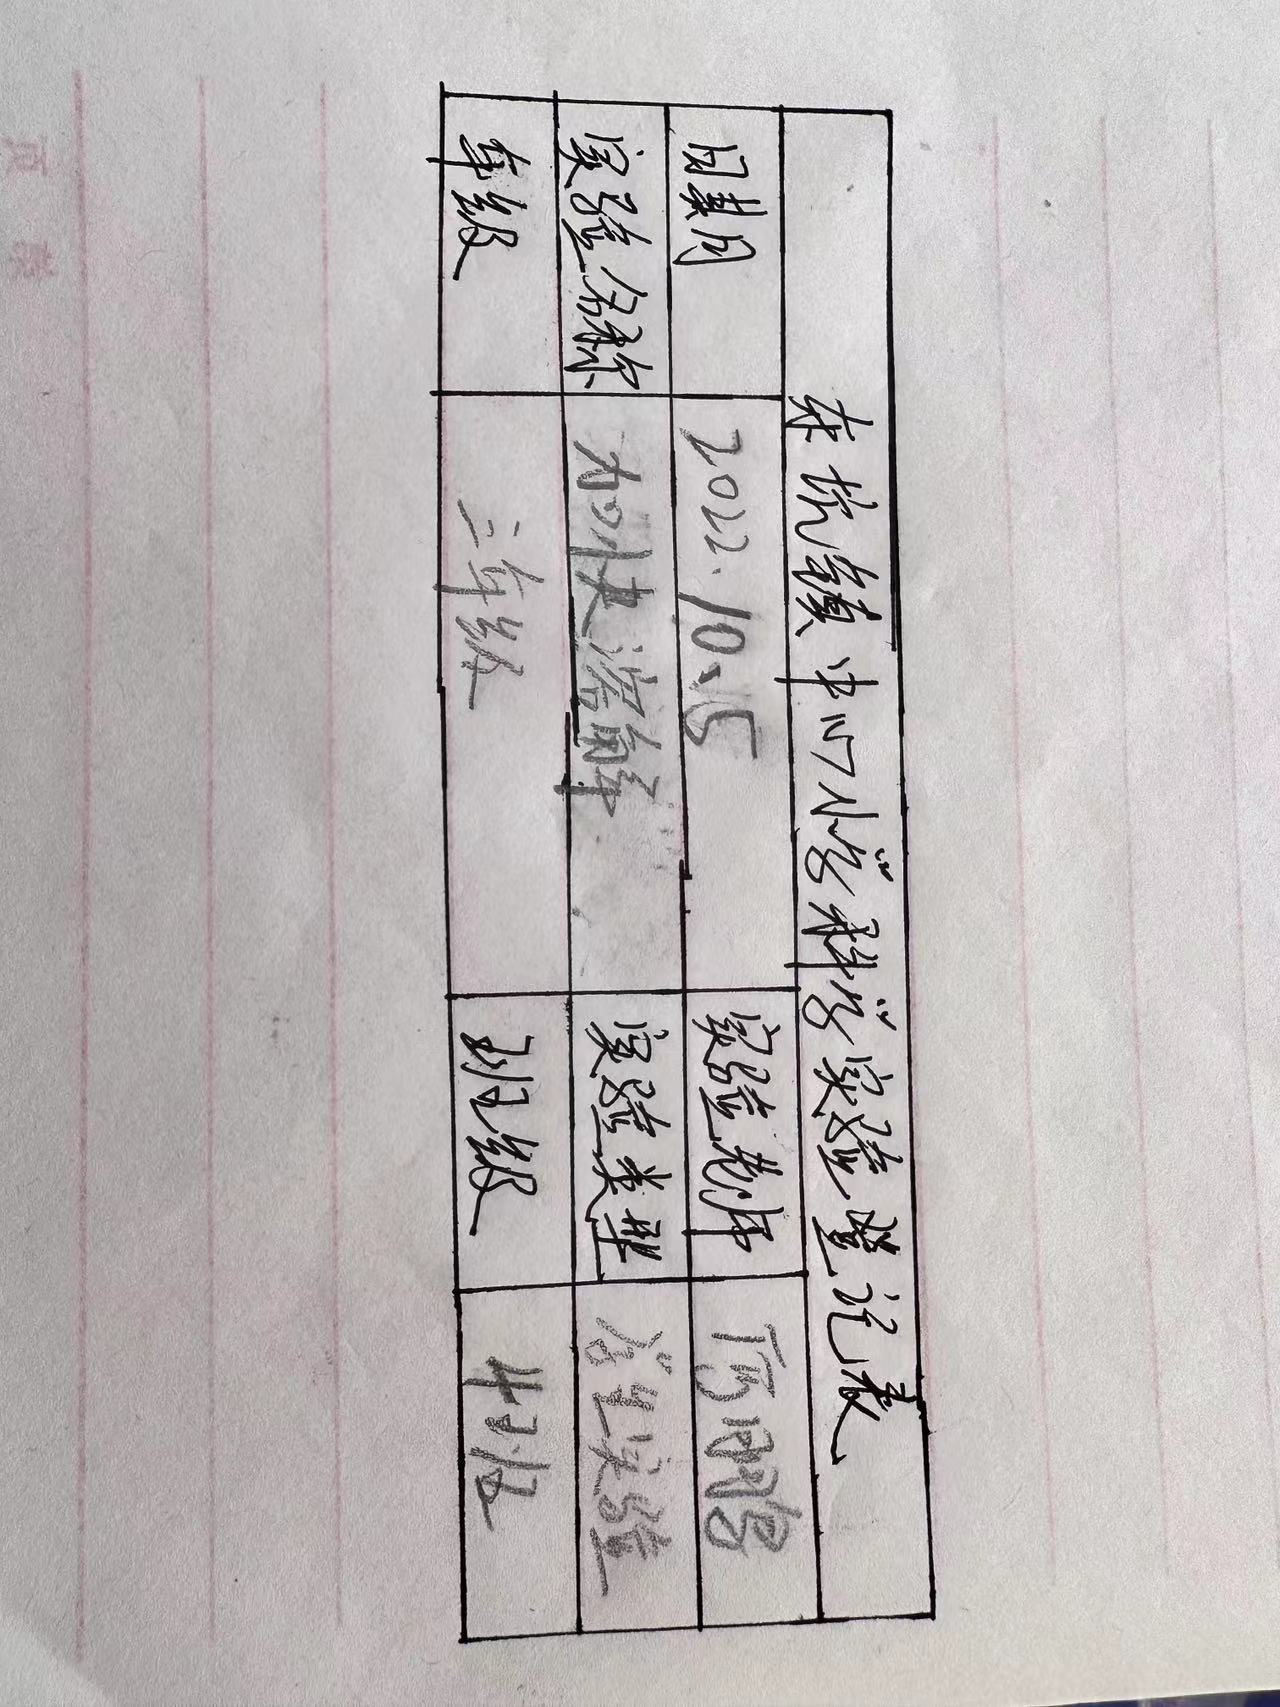 坑镇中心小学科学实验登记表
日期 2022.10.15 实验老师
实验名称 加快溶解 实验类型 学生实验
年级 三年级 班级 4班